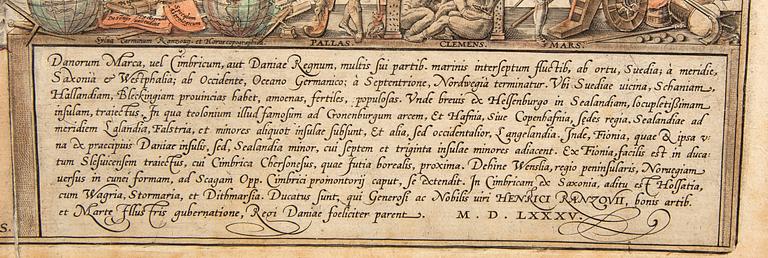 Sylva Terminum Ranzoug: et Horoscopographia.
PALLAS.
CLEMENS.
MARS.
Danorum Marca, vel Cimbricum, aut Daniae Regnum, multis sui partib. marinis interseptum fluctib, ab ortu, Suedia; à meridie,
Saxonia & Westphalia; ab Occidente, Oceano Germanico; à Septentrione, Nordwegia terminatur. Vbi Suediae vicina, Schaniam,
Hallandiam, Bleckingiam prouincias habet, amoenas, fertiles, populosas. Vnde breuis ex Helsenburgo in Sealandiam, locupletissimam
insulam, traiectus. In qua teolonium illud famosum ad Cronenburgum arcem, et Hafnia, Siue Copenhafnia, Sedes regia. Sealandiae ad
meridiem Lalandia, Falstria, et minores aliquot insulae subsunt, Et alia, sed occidentalior, Langelandia. Inde, Fionia, quae & ipsa v
na ex praecipuis Daniae insulis, sed, Sealandia minor, cui septem et triginta insulae minores adiacent. Ex Fionia, facilis est in duca
tum Slesuicensem traiectus, cui Cimbrica Chersonesus, quae Iutia borealis, proxima. Dehinc Wenslia, regio peninsularis, Noruegiam
versus in cunei formam, ad Scagam Opp. Cimbrici promontorij caput, se extendit. In Cimbricam ex Saxonia, aditu est Holsatia,
cum Wagria, Stormaria, et Dithmarsia. Ducatus sunt, qui Generosi ac Nobilis viri HENRICI RANZOVII, bonis artib.
et Marte Illustris gubernatione, Regi Daniae foeliciter parent. M. D. LXXXV.
S.